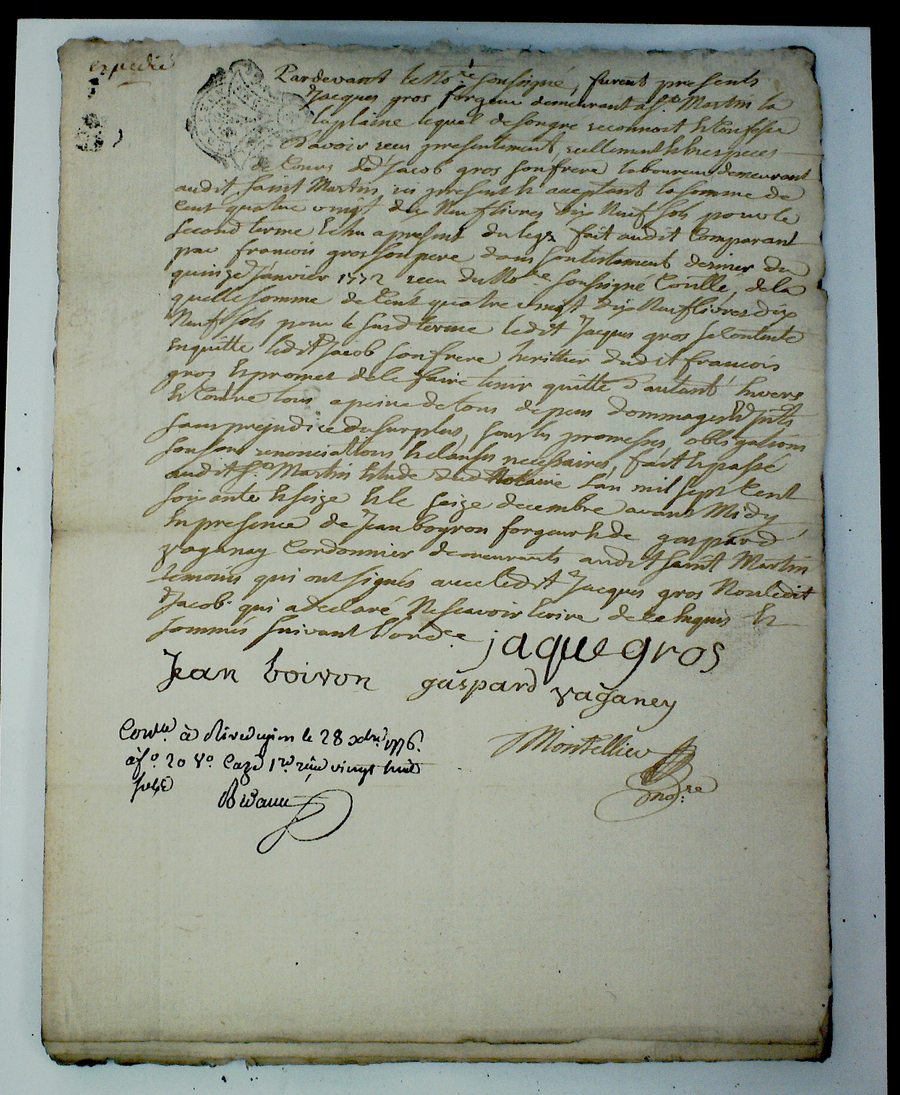 expedié
Pardevant le No.re Soussigné, furent presents
Jacques gros forgeur demeurant a St Martin la
la plaine lequel de son gre reconnoit et Confesse
D'avoir receu presentement, reellement et en especes
de Cours de Jacob gros son frere laboureur demeurant
audit Saint Martin, icy present et acceptant la somme de
Cent quatre vingt dix Neuf livres dix Neuf Sols pour le
second terme Echu apresent du legs fait audit Comparant
par francois gros son pere dans son testament dernier du
quinze Janvier 1772 receu du No.re Soussigné Conllé, de la
quelle somme de Cent quatre vingt dix Neuf livres dix
Neuf Sols pour le susd terme ledit Jacques gros se Contente
en quitte ledit Jacob son frere heritier dudit francois
gros et promet de le faire tenir quitte d'autant Envers
et Contre tous a peine de tous depens dommages interets
sans prejudice du surplus, sous les promesses, obligations
renonciations et clauses necessaires, fait et passé
audit St Martin Etude dud Notaire l'an mil sept Cent
soixante et seize et le seize decembre avant Midy
en presence de Jean boyron forgeur et de gaspard
vaganay Cordonnier demeurants audit Saint Martin
temoins qui ont signés avec ledit Jacques gros Non ledit
Jacob qui a declaré Ne scavoir Ecrire de ce Enquis et
sommés suivant l'ord.ce
jaque gros
Jean boiron gaspard vaganey
Con.lé à Rivedegier le 28 xbre 1776
a f.o 20 V.o Caze 1.re vingt huit
sols
Montellier
no.re